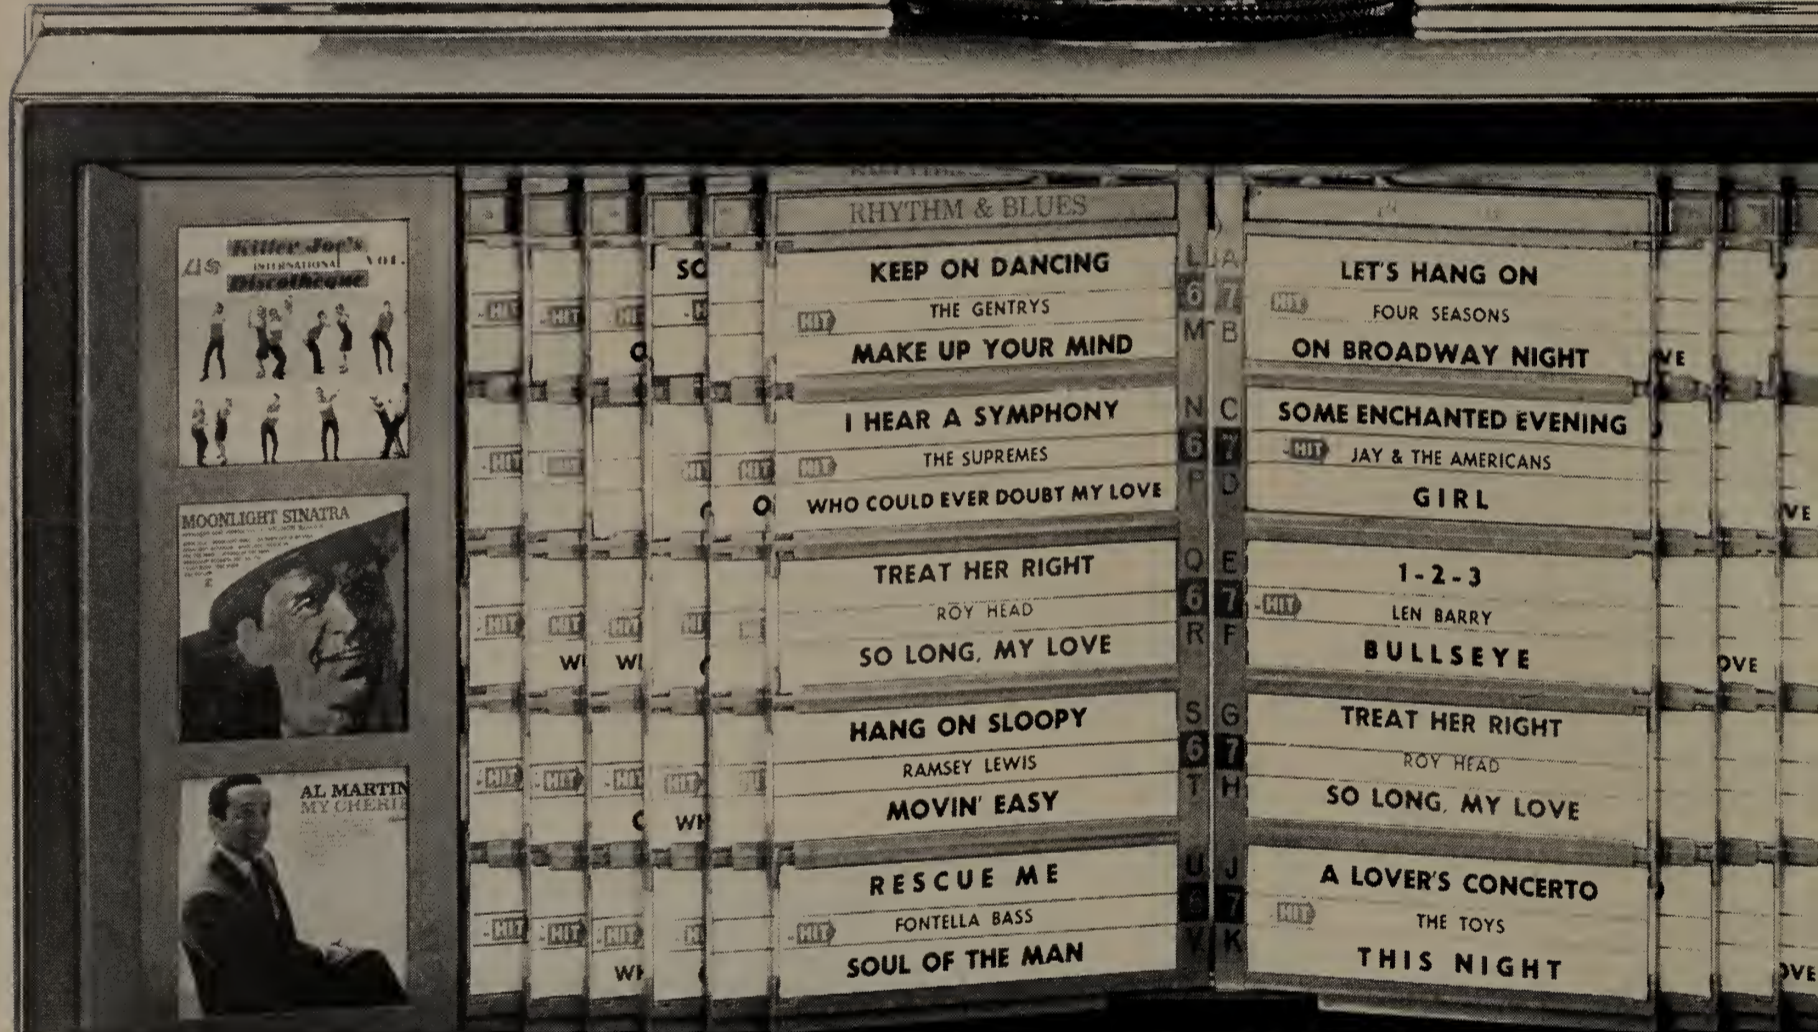 Killer Joe's
INTERNATIONAL VOL.
Discotheque
MOONLIGHT SINATRA
AL MARTIN
MY CHERIE
SO
HIT
HIT
HIT
O
HIT
HIT
HIT
HIT
O
HIT
HIT
HIT
HIT
WH
WH
HIT
HIT
HIT
HIT
WH
HIT
HIT
HIT
WH
RHYTHM & BLUES
KEEP ON DANCING
HIT THE GENTRYS
MAKE UP YOUR MIND
I HEAR A SYMPHONY
HIT THE SUPREMES
WHO COULD EVER DOUBT MY LOVE
TREAT HER RIGHT
ROY HEAD
SO LONG, MY LOVE
HANG ON SLOOPY
RAMSEY LEWIS
MOVIN' EASY
RESCUE ME
HIT FONTELLA BASS
SOUL OF THE MAN
L A
6 7
M B
N C
6 7
P D
Q E
6 7
R F
S G
6 7
T H
U J
6 7
V K
LET'S HANG ON
HIT FOUR SEASONS
ON BROADWAY NIGHT
SOME ENCHANTED EVENING
HIT JAY & THE AMERICANS
GIRL
1-2-3
HIT LEN BARRY
BULLSEYE
TREAT HER RIGHT
ROY HEAD
SO LONG, MY LOVE
A LOVER'S CONCERTO
HIT THE TOYS
THIS NIGHT
VE
VE
OVE
OVE